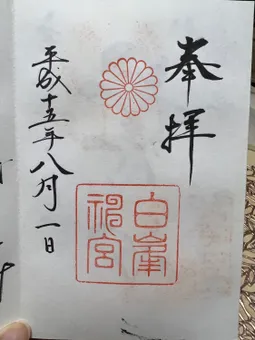 奉拝
白峯
神宮
平成十五年八月一日